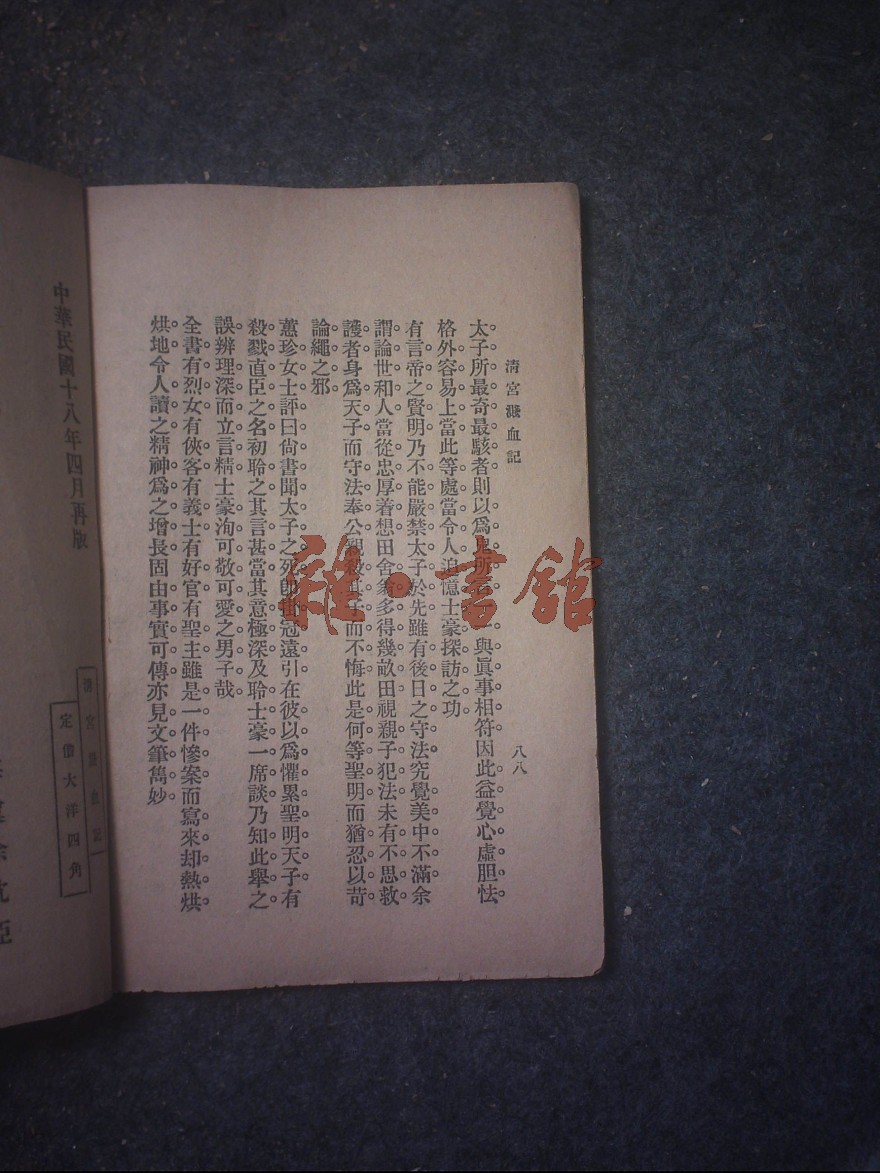 清宮濺血記
八八
太子所最奇最駭者則以爲鬼所言一一與眞事相符因此益覺心虛胆怯
格外容易上當此等處當令人追憶士豪探訪之功
有言帝之賢明乃不能嚴禁太子於先雖有後日之守法究覺美中不滿余
謂論世和人當從忠厚着想田舍翁多得幾畝田視親子犯法未有不思救
護者身爲天子而守法奉公親殺其子而不悔此是何等聖明而猶忍以苛
論繩之邪
蕙珍女士評曰尙書聞太子之死卽掛冠遠引在彼以爲懼累聖明天子有
殺戮直臣之名初聆之其言甚當其意極深及聆士豪一席談乃知此舉之
誤辨理深而立言精士豪洵可敬可愛之男子哉
全書有烈女有俠客有義士有好官有聖主雖是一件慘案而寫來却熱烘
烘地令人讀之精神爲之增長固由事實可傳亦見文筆雋妙
中華民國十八年四月再版
清宮濺血記一
定價大洋四角
雜·書舘